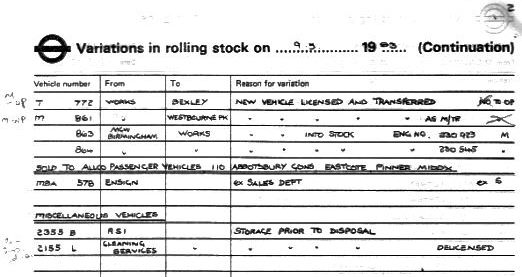 2
Variations in rolling stock on 9.3 1983 (Continuation)
Vehicle number From To Reason for variation
T 772 WORKS BEXLEY NEW VEHICLE LICENSED AND TRANSFERRED TO OP
M 861 " WESTBOURNE PK " " " " AS M/TR
863 MCW BIRMINGHAM WORKS " INTO STOCK ENG NO. 230 923 M
864 " " " " " " 230 545 "
SOLD TO ALLCO PASSENGER VEHICLES 110 ABBOTSBURY GDNS EASTCOTE PINNER MIDDX
MBA 578 ENSIGN ex SALES DEPT ex S
MISCELLANEOUS VEHICLES
2355 B RSI STORAGE PRIOR TO DISPOSAL
2155 L CLEANING SERVICES " " " " DELICENSED